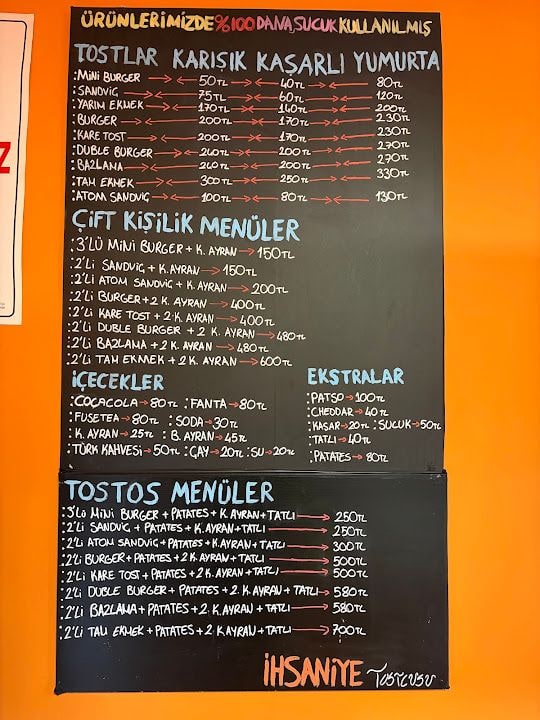 ÜRÜNLERİMİZDE %100 DANA SUCUK KULLANILMIŞ
TOSTLAR KARIŞIK KAŞARLI YUMURTA
:MİNİ BURGER → ← 50TL → ← 40TL → ← 80TL
:SANDVİÇ → ← 75TL → ← 60TL → ← 120TL
:YARIM EKMEK → ← 170TL → ← 140TL → ← 200TL
:BURGER → ← 200TL → ← 170TL → ← 230TL
:KARE TOST → ← 200TL → ← 170TL → ← 230TL
:DUBLE BURGER → ← 240TL → ← 200TL → ← 270TL
:BAZLAMA → ← 240TL → ← 200TL → ← 270TL
:TAM EKMEK → ← 300TL → ← 250TL → ← 330TL
:ATOM SANDVİÇ → ← 100TL → ← 80TL → ← 130TL
ÇİFT KİŞİLİK MENÜLER
:3'LÜ MİNİ BURGER + K. AYRAN → 150TL
:2'Lİ SANDVİÇ + K. AYRAN → 150TL
:2'Lİ ATOM SANDVİÇ + K. AYRAN → 200TL
:2'Lİ BURGER + 2 K. AYRAN → 400TL
:2'Lİ KARE TOST + 2 K. AYRAN → 400TL
:2'Lİ DUBLE BURGER + 2 K. AYRAN → 480TL
:2'Lİ BAZLAMA + 2 K. AYRAN → 480TL
:2'Lİ TAM EKMEK + 2 K. AYRAN → 600TL
İÇECEKLER
:COCACOLA → 80TL :FANTA → 80TL
:FUSETEA → 80TL :SODA → 30TL
:K. AYRAN → 25TL :B. AYRAN → 45TL
:TÜRK KAHVESİ → 50TL :ÇAY → 20TL :SU → 20TL
EKSTRALAR
:PATSO → 100TL
:CHEDDAR → 40TL
:KAŞAR → 20TL :SUCUK → 50TL
:TATLI → 40TL
:PATATES → 80TL
TOSTOS MENÜLER
:3'LÜ MİNİ BURGER + PATATES + K.AYRAN + TATLI → 250TL
:2'Lİ SANDVİÇ + PATATES + K.AYRAN + TATLI → 250TL
:2'Lİ ATOM SANDVİÇ + PATATES + K.AYRAN + TATLI → 300TL
:2'Lİ BURGER + PATATES + 2 K.AYRAN + TATLI → 500TL
:2'Lİ KARE TOST + PATATES + 2 K.AYRAN + TATLI → 500TL
:2'Lİ DUBLE BURGER + PATATES + 2. K.AYRAN + TATLI → 580TL
:2'Lİ BAZLAMA + PATATES + 2. K.AYRAN + TATLI → 580TL
:2'Lİ TAM EKMEK + PATATES + 2 K.AYRAN + TATLI → 700TL
İHSANİYE TOSTCUSU